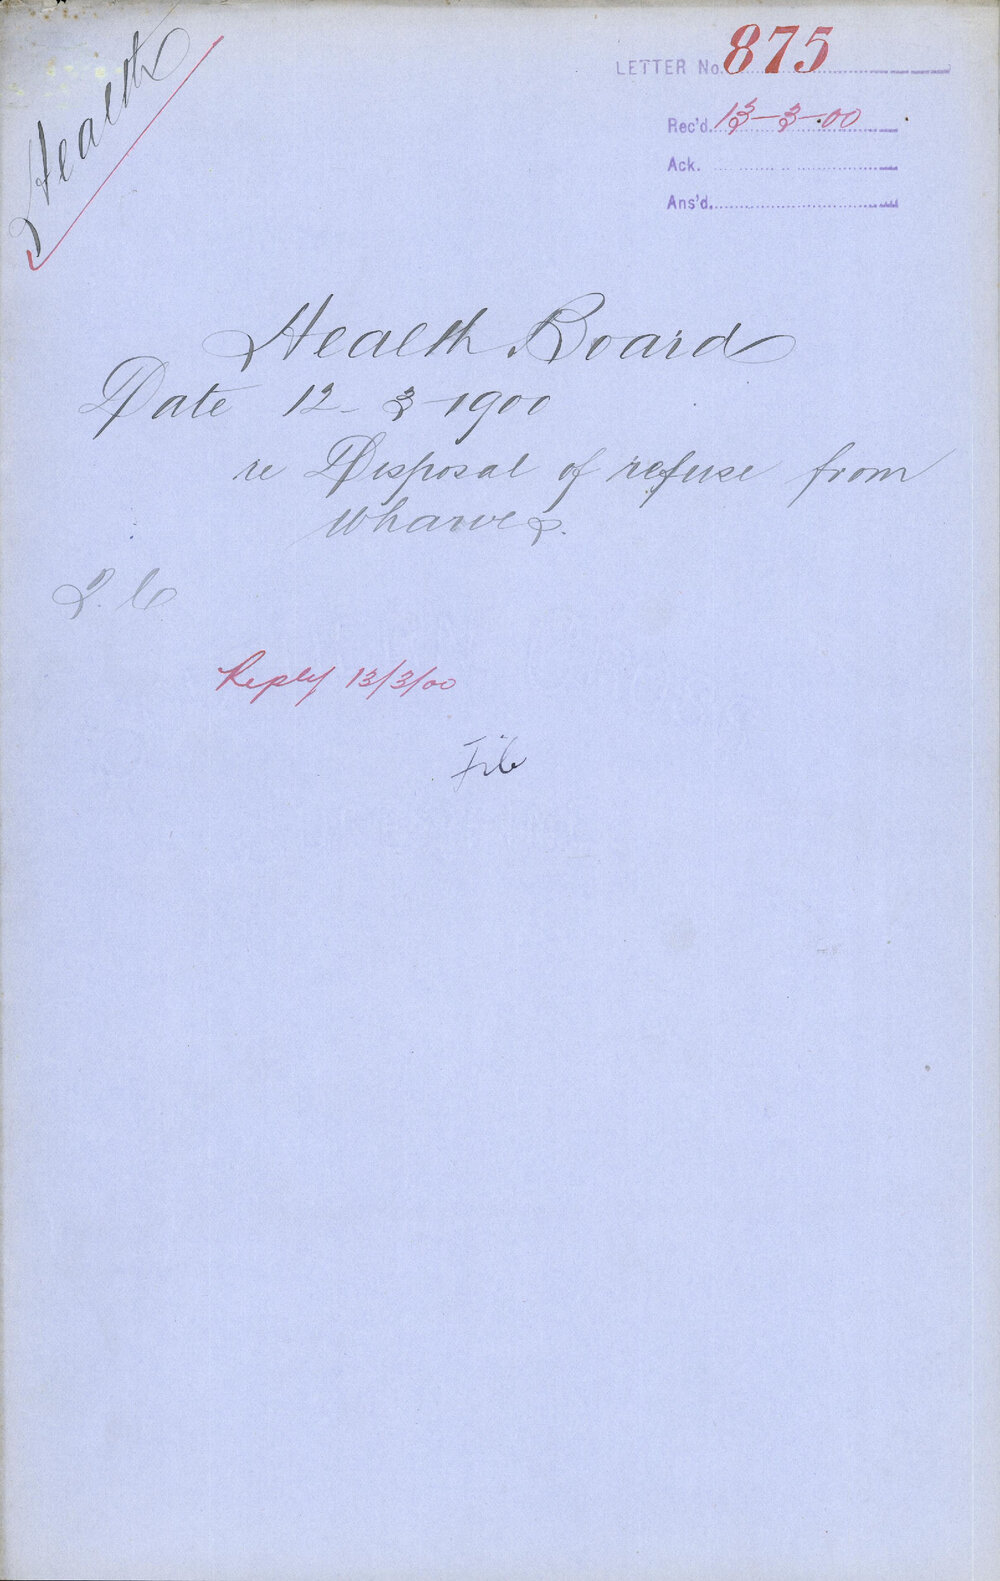 Health
LETTER No. 875
Rec'd. 13-3-00
Ack.
Ans'd.
Health Board
Date 12-3-1900
re Disposal of refuse from
Wharves.
Reply 13/3/00
File